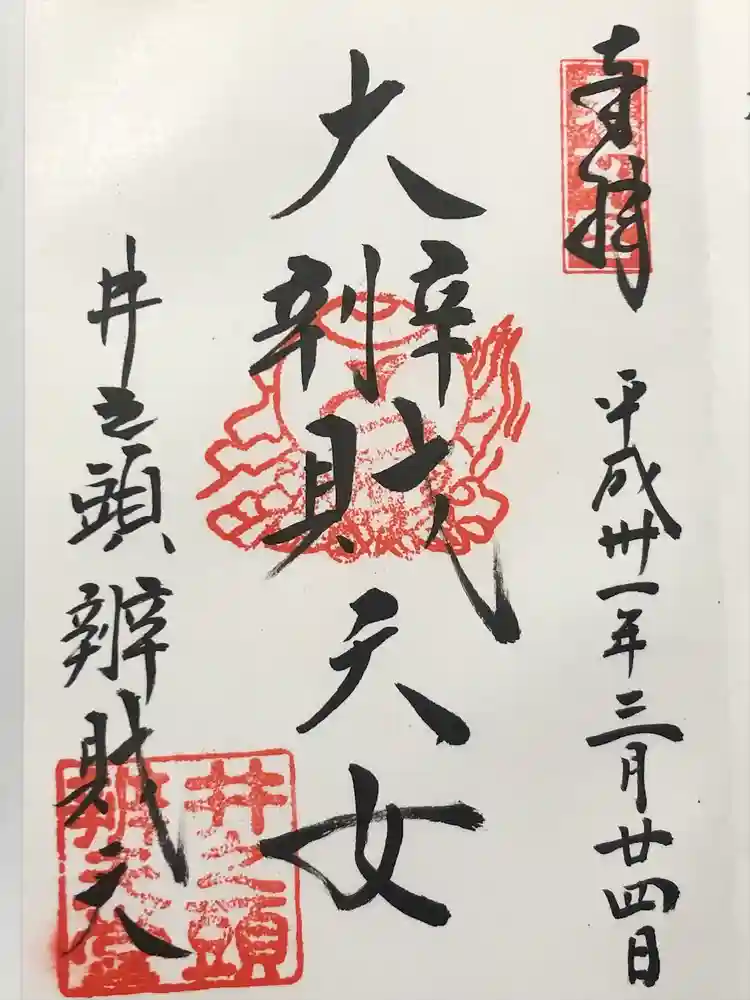 奉拝
平成丗一年三月廿四日
大辨財天女
井之頭辨財天
井之頭
辨天堂